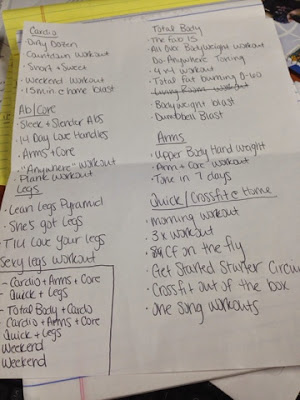 Cardio
• Dirty Dozen
• Countdown Workout
• Short + Sweet
• Weekend Workout
• 15 min @ home blast
Ab/Core
• Sleek + Slender Abs
• 14 Day Love Handles
• Arms + Core
• "Anywhere" workout
• Plank Workout
Legs
• Lean Legs Pyramid
• She's got Legs
• T1U Love your legs
Sexy legs workout
- Cardio + Arms + Core
Quick + Legs
- Total Body + Cardio
- Cardio + Arms + Core
Quick + Legs
Weekend
Weekend
Total Body
• The Fab 15
• All Over Bodyweight workout
• Do-Anywhere Toning
• 4 x 4 workout
• Total Fat burning
• Living Room Workout
• Bodyweight blast
• Dumbbell Blast
Arms
• Upper Body Hand weight
• Arm + Core Workout
• Tone in 7 days
Quick/Crossfit @ Home
• morning workout
• 3x workout
• CF on the fly
• Get Started Starter Circui
• Crossfit out of the box
• One Song workouts